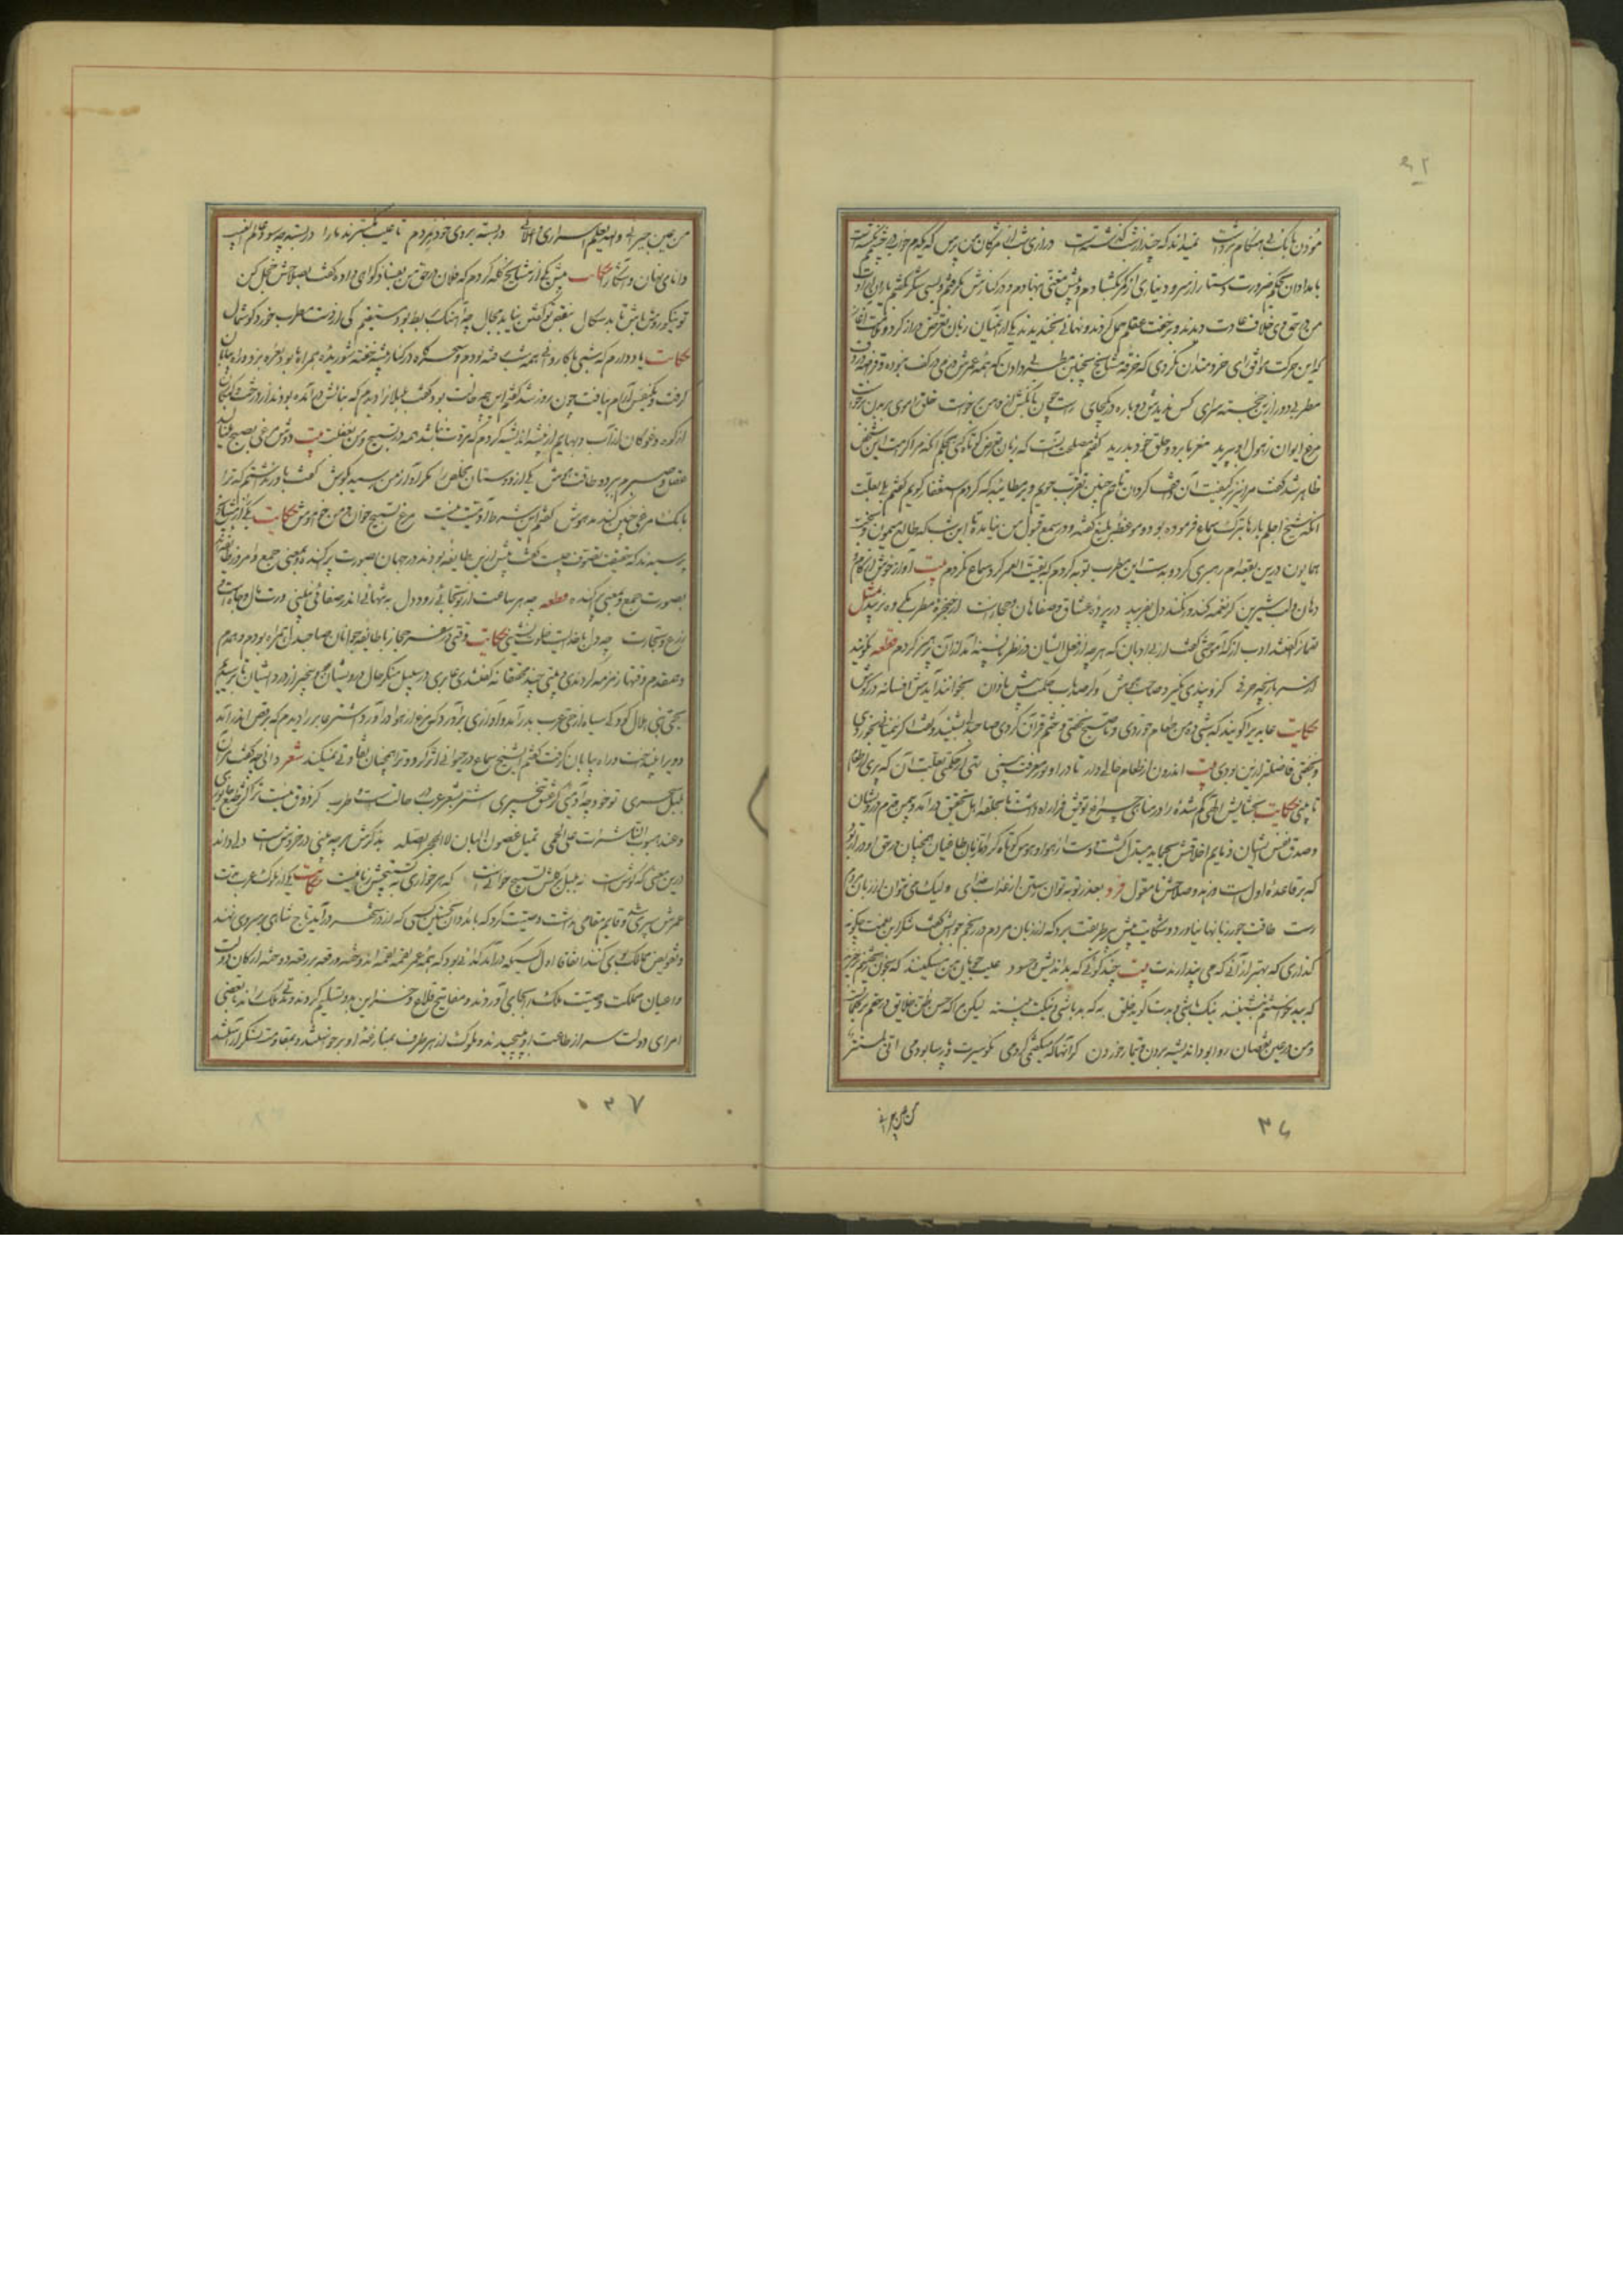 مؤذن بانک بی هنگام برداشت نمیداند که چند از شب گذشتست درازی شب از مژگان من پرس که یکدم خواب در چشمم نگشتست
بامدادان بحکم ضرورت دستار از سر و دیناری از کمر بگشادم و پیش مغنی بنهادم و در کنارش گرفتم و بسی شکر گفتم یاران ارادت
من در حق وی خلاف عادت دیدند و بر خفت عقلم حمل کردند و نهانی بخندیدند یکی از آنمیان زبان تعرض دراز کرد و ملامت آغاز
که این حرکت موافق رای خردمندان نکردی که خرقه مشایخ بچنین مطربی دادن که همه عمرش درمی در کف نبوده و قراضه در دف
مطربی دور ازین خجسته سرای کس ندیدش دوباره در یکجای راست چون بانکش از دهن برخاست خلق را موی بر بدن برخاست
مرغ ایوان ز هول او بپرید مغز ما برد و حلق خود بدرید گفتم مصلحت آنست که زبان تعرض کوتاه کنی بحکم آنکه مرا کرامت این شخص
ظاهر شد گفت مرا نیز بر کیفیت آن واقف کردان تا همچنین تقرب جویم و بر مطایبه که کردم استغفار گویم گفتم بلی بعلت
آنکه شیخ اجلم بارها بترک سماع فرموده بود و موعظهای بلیغ گفته و در سمع قبول من نیامده تا امشب که طالع میمون و بخت
همایون درین بقعه‌ام رهبری کرد و بدست این مطرب توبه کردم که بقیت العمر گرد سماع نگردم بیت آواز خوش از کام و
دهان و لب شیرین گر نغمه کند ور نکند دل بفریبد در پرده عشاق و صفاهان و حجازست از حنجره مطرب مکروه نزیبد مثل
لقمان را گفتند ادب از که آموختی گفت از بی ادبان که هرچه از فعل ایشان در نظرم ناپسند آمد از آن پرهیز کردم قطعه نگویند
از سر بازیچه حرفی کزو پندی نگیرد صاحب هوش وگر صد باب حکمت پیش نادان بخوانند آیدش افسانه در گوش
حکایت عابدی را گویند که شبی ده من طعام خوردی و تا صبح نخفتی و ختم قرآن کردی صاحبدلی بشنید و گفت اگر نیم نان بخوردی
و بخفتی فاضلتر ازین بودی بیت اندرون از طعام خالی دار تا درو نور معرفت بینی تهی از حکمتی بعلت آن که پری از طعام
تا بینی حکایت بخشایش الهی گم شده را در مناهی چراغ توفیق فرا راه داشت تا بحلقه اهل تحقیق درآمد و بیمن قدم درویشان
و صدق نفس ایشان ذمایم اخلاقش بمحامد مبدل گشت و دست از هوا و هوس کوتاه کرد و زبان طاعنان همچنان در حق او دراز بود
که بر قاعده اول است و زهد و صلاحش نامعقول فرد بعذر توبه توان رستن از عذاب خدای ولیک می نتوان از زبان مردم
رست طاقت جور زبانها نیاورد و شکایت پیش پیر طریقت برد که از زبان مردم در رنجم جوابش گفت شکر این نعمت چگونه
گذاری که بهتر از آنی که می پندارندت بیت چند گوئی که بداندیش و حسود عیب جویان من مسکینند که بخون ریختنم برخیزند
که ببد خواستنم بنشینند نیک باشی و بدت گوید خلق به که بد باشی و نیکت بینند لیکن مرا که حسن ظن خلایق در حقم بر کمالست
و من در عین نقصان روا بود اندیشه بردن و تیمار خوردن گر آنها که میگفتمی کردمی نکوسیرت و پارسا بودمی انی لمستتر
من عین جیرانی
۳۶
من عین جیرانی والله یعلم اسراری و اعلانی در بسته بروی خود ز مردم تا عیب نگسترند ما را در بسته چه سود عالم الغیب
دانای نهان و آشکارا حکایت پیش یکی از مشایخ گله کردم که فلان در حق من بفساد گواهی داده گفت بصلاحش خجل کن
تو نیکو روش باش تا بدسگال بنقص تو گفتن نیابد مجال چو آهنگ بربط بود مستقیم کی از دست مطرب خورد گوشمال
حکایت یاد دارم که شبی با کاروانی همه شب رفته بودم و سحرگاه در کنار بیشه خفته شوریده همراه ما بود نعره بزد و راه بیابان
گرفت و یکنفس آرام نیافت چون روز شد گفتم این چه حالت بود گفت بلبلانرا دیدم که بنالش در آمده بودند از درخت و کبکان
از کوه و غوکان از آب و بهایم از بیشه اندیشه کردم که مروت نباشد همه در تسبیح و من بغفلت بیت دوش مرغی بصبح مینالید
عقل و صبرم ببرد و طاقت و هوش یکی از دوستان مخلص را مگر آواز من رسید بگوش گفت باور نداشتم که ترا
بانک مرغی چنین کند مدهوش گفتم این شرط آدمیت نیست مرغ تسبیح خوان و من خاموش حکایت یکی از مشایخ
پرسیدند که حقیقت تصوف چیست گفت پیش ازین طایفه بودند در جهان بصورت پراکنده و بمعنی جمع و امروز طایفه
بصورت جمع و بمعنی پراکنده قطعه چو هر ساعت از تو بجائی رود دل به تنهائی اندر صفائی نبینی ورت مال و جاه است
زرع و تجارت چو دل با خداست خلوت نشینی حکایت وقتی در سفر حجاز با طایفه جوانان صاحبدل همراه بودم و همدم
و همقدم وقتها زمزمه کردندی و بیتی چند محققانه گفتندی عابدی در سبیل منکر حال درویشان و بیخبر از درد ایشان تا برسیدیم
بنخلی بنی هلال کودکی سیاه از حی عرب بدر آمد و آوازی برآورد که مرغ از هوا درآورد اشتر عابد را دیدم که برقص اندر آمد
و ویرا بینداخت و راه بیابان گرفت گفتم ای شیخ سماع در حیوانی اثر کرد و ترا همچنان تفاوتی نمیکند شعر دانی چه گفت مرا آن
بلبل سحری تو خود چه آدمئی کز عشق بیخبری اشتر بشعر عرب در حالتست و طرب گر ذوق نیست ترا کژ طبع جانوری
و عند هبوب الناشرات علی الحمی تمیل غصون البان لا الحجر الصلد بذکرش هرچه بینی در خروش است دلی داند
درین معنی که گوش است نه بلبل بر گلش تسبیح خوانیست که هر خاری به تسبیحش زبانیست حکایت یکی از ملوک عرب مدت
عمرش سپری شد و قایم مقامی نداشت وصیت کرد که بامدادان نخستین کسی که از در شهر درآید تاج شاهی بر سر وی نهند
و تفویض ممالک بوی کنند اتفاقا اول کسیکه درآمد گدائی بود که همه عمر لقمه لقمه اندوخته و رقعه بر رقعه دوخته ارکان دولت
و اعیان مملکت وصیت ملک را بجای آوردند و مفاتیح قلاع و خزاین بدو تسلیم کردند و مدتی ملک راند تا بعضی
امرای دولت سر از طاعت او بپیچیدند و ملوک از هر طرف بمنازعت او برخواستند و بمقاومت لشکر آراستند
۳۷